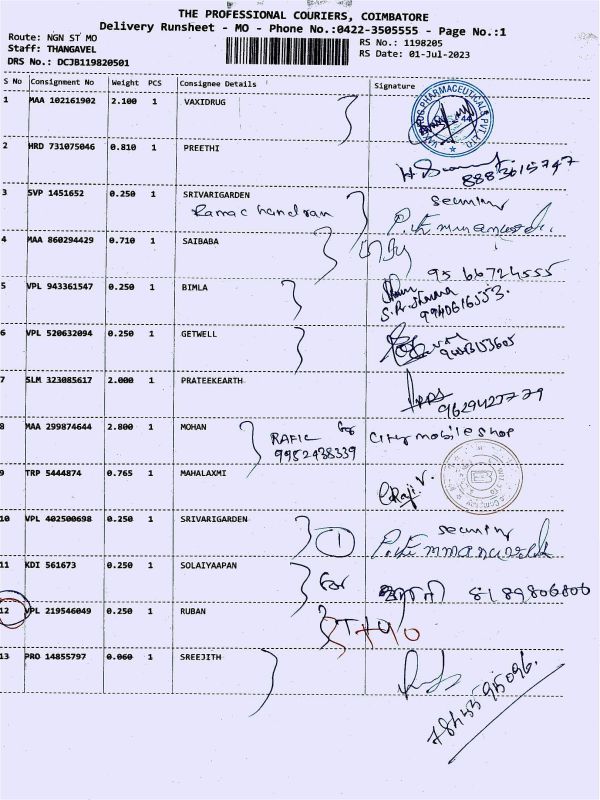 THE PROFESSIONAL COURIERS, COIMBATORE
Delivery Runsheet - MO - Phone No.:0422-3505555 - Page No.:1
Route: NGN ST MO
Staff: THANGAVEL
DRS No.: DCJB119820501
RS No.: 1198205
RS Date: 01-Jul-2023
S No Consignment No Weight PCS Consignee Details Signature
1 MAA 102161902 2.100 1 VAXIDRUG
2 HRD 731075046 0.810 1 PREETHI
8883615747
3 SVP 1451652 0.250 1 SRIVARIGARDEN
Ramachandran
4 MAA 860294429 0.710 1 SAIBABA
9566724555
5 VPL 943361547 0.250 1 BIMLA
9940616553.
6 VPL 520632094 0.250 1 GETWELL
7 SLM 323085617 2.000 1 PRATEEKEARTH
9629427779
8 MAA 299874644 2.800 1 MOHAN
RAFIC for City mobile shop
9952438339
9 TRP 5444874 0.765 1 MAHALAXMI
Raji V.
10 VPL 402500698 0.250 1 SRIVARIGARDEN
1
11 KDI 561673 0.250 1 SOLAIYAAPAN
for
8189806806
12 VPL 219546049 0.250 1 RUBAN
13 PRO 14855797 0.060 1 SREEJITH